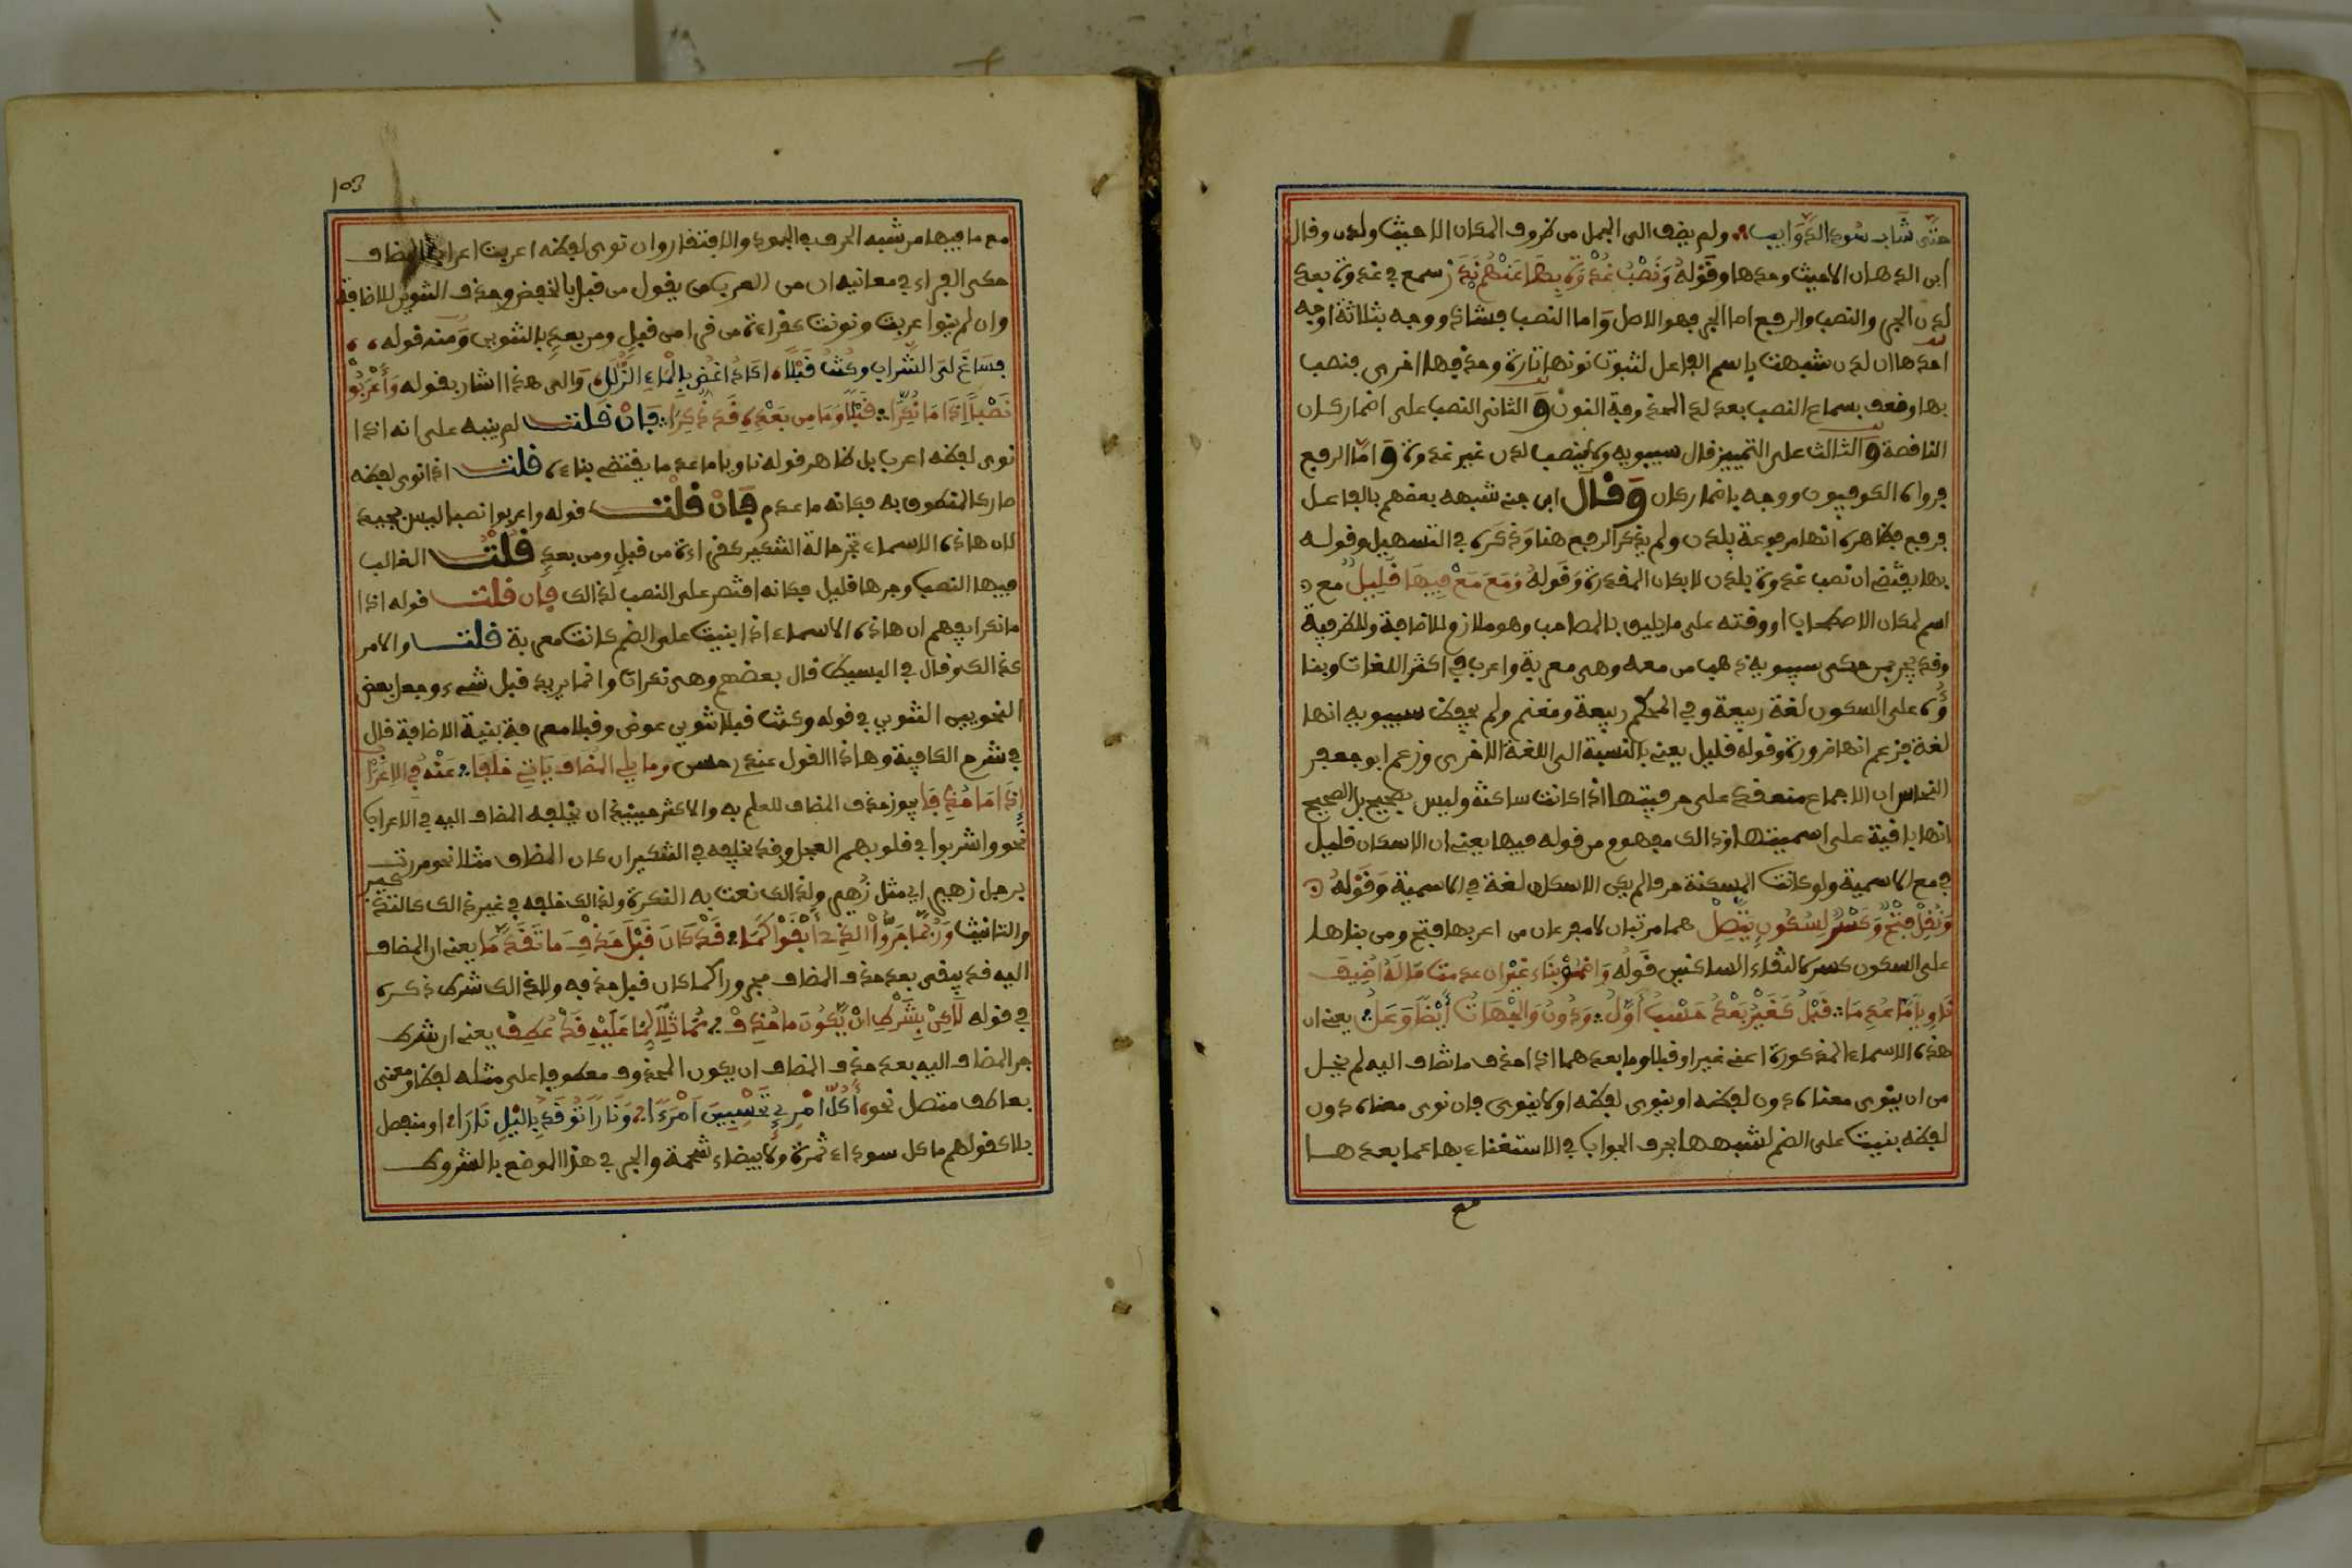 حتى شاب سود الذوايب ولم يضف الى الجمل من ظروف المكان الا حيث ولدن وقال
ابن الدهان الا حيث وحدها وقوله ونصب غدوة بها عنهم ندر سمع في غدوة بعد
لدن الجر والنصب والرفع اما الجر فهو الاصل واما النصب فشاذ ووجه بثلاثة اوجه
احدها ان لدن شبهت باسم الفاعل لثبوت نونها تارة وحذفها اخرى فنصب
بها وضعف بسماع النصب بعد لد المحذوفة النون والثاني النصب على اضمار كان
الناقصة والثالث على التمييز قال سيبويه ولا ينصب لدن غير غدوة واما الرفع
فرواه الكوفيون ووجه باضمار كان وقال ابن جني شبهه بعضهم بالفاعل
فرفع فظاهره انها مرفوعة بلدن ولم يذكر الرفع هنا وذكره في التسهيل وقوله
بها يقتضي ان نصب غدوة بلدن لا بكان المقدرة وقوله ومع مع فيها قليل مع
اسم لمكان الاصطحاب او وقته على ما يليق بالمصاحب وهو ملازم للاضافة وللظرفية
وقد يجر بمن حكى سيبويه ذهب من معه وهي معربة واعرب في اكثر اللغات وبنا
ؤه على السكون لغة ربيعة وفي المحكم ربيعة وغنم ولم يحفظ سيبويه انها
لغة فزعم انها ضرورة وقوله قليل يعني بالنسبة الى اللغة الاخرى وزعم ابو جعفر
النحاس ان الاجماع منعقد على حرفيتها اذا كانت ساكنة وليس بصحيح بل الصحيح
انها باقية على اسميتها وذالك مفهوم من قوله فيها يعني ان الاسكان قليل
في مع الاسمية ولو كانت المسكنة حرفا لم يكن الاسكان لغة في الاسمية وقوله
ونقل فتح وكسر لسكون يتصل هما مرتبان لا مفرعان من اعربها فتح ومن بناها
على السكون كسر لالتقاء الساكنين قوله واضمم بناء غيرا ان عدمت ما له اضيف
ناويا ما عدما قبل كغير بعد حسب اول ودون والجهات ايضا وعل يعني ان
هذه الاسماء المذكورة اعني غيرا وقبلا وما بعدهما اذا حذف ما تضاف اليه لم يخل
من ان ينوى معناه دون لفظه او ينوى لفظه او لا ينوى فان نوى معناه دون
لفظه بنيت على الضم لشبهها بحرف الجواب في الاستغناء بها عما بعدها
مع
103
مع ما فيها من شبه الحرف في الجمود والافتقار وان نوى لفظه اعربت اعراب المضاف
حكى الفراء في معانيه ان من العرب من يقول من قبل بالخفض وحذف التنوين للاضافة
وان لم ينو اعربت ونونت كقراءة من قرا من قبل ومن بعد بالتنوين ومنه قوله
فساغ لي الشراب وكنت قبلا اكاد اغص بالماء الزلال والى هذا اشار بقوله واعربوا
نصبا اذا ما نكرا قبلا وما من بعده قد ذكرا فان قلت لم ينبه على انه اذا
نوى لفظه اعرب بل ظاهر قوله ناويا ما عدما يقتضي بناءه قلت اذا نوى لفظه
صار كالمنطوق به فكانه ما عدم فان قلت قوله واعربوا نصبا ليس بجيد
لان هاذه الاسماء تجر حالة التنكير كقراءة من قبل ومن بعد قلت الغالب
فيها النصب وجرها قليل فكانه اقتصر على النصب لذالك فان قلت قوله اذا
ما نكرا يفهم ان هاذه الاسماء اذا بنيت على الضم كانت معرفة قلت والامر
كذالك وقال في البسيط قال بعضهم وهي نكرات وانما يريد قبل شيء وجعل بعض
النحويين التنوين في قوله وكنت قبلا تنوين عوض وقبلا معرفة بنية الاضافة قال
في شرح الكافية وهاذا القول عندي حسن وما يلي المضاف ياتي خلفا عنه في الاعراب
اذا ما حذفا يجوز حذف المضاف للعلم به والاكثر حينيذ ان يخلفه المضاف اليه في الاعراب
نحو واشربوا في قلوبهم العجل وقد يخلفه في التنكير ان كان المضاف مثلا نحو مررت
برجل زهير اي مثل زهير ولذالك نعت به النكرة ولذالك خلفه في غير ذالك كالتذكير
والتانيث وربما جروا الذي ابقوا كما قد كان قبل حذف ما تقدما يعني ان المضاف
اليه قد يبقى بعد حذف المضاف مجرورا كما كان قبل حذفه ولاكن لذالك شرط ذكره
في قوله لاكن بشرط ان يكون ما حذف مماثلا لما عليه قد عطف يعني ان شرط
جر المضاف اليه بعد حذف المضاف ان يكون المحذوف معطوفا على مثله لفظا ومعنى
بعاطف متصل نحو اكل امرئ تحسبين امرءا ونارا توقد بالليل نارا او منفصل
بلا كقولهم ما كل سوداء تمرة ولا بيضاء شحمة والجر في هذا الموضع بالشروط